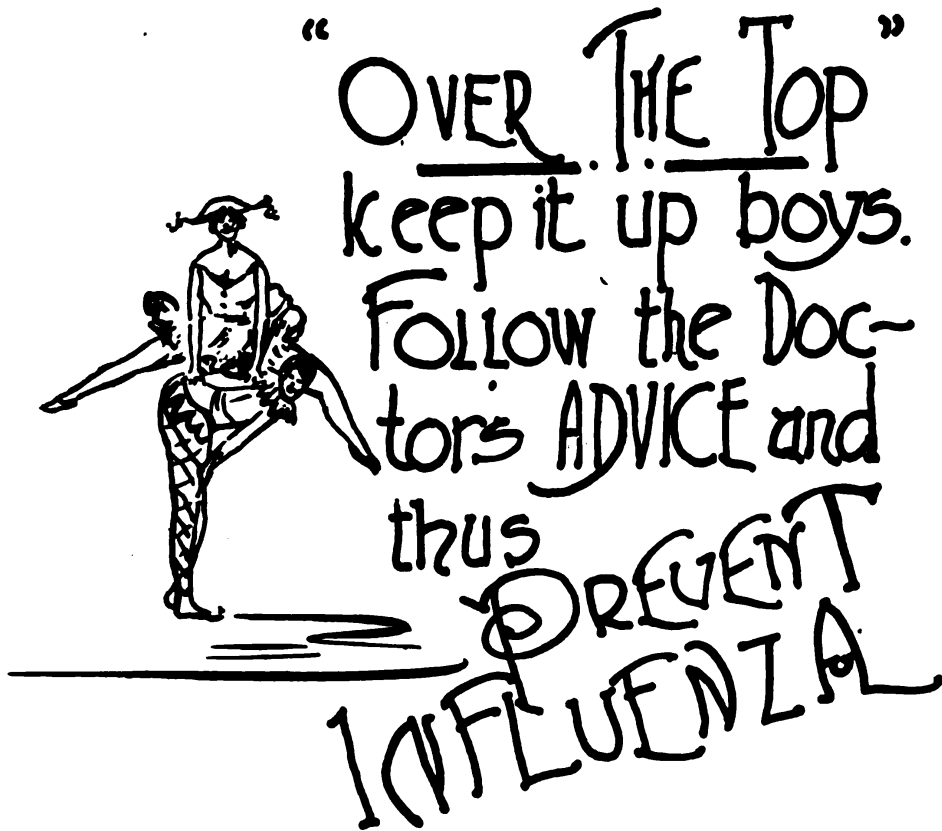 “OVER THE TOP”
keep it up boys.
FOLLOW the DOC-
tor's ADVICE and
thus PREVENT
INFLUENZA